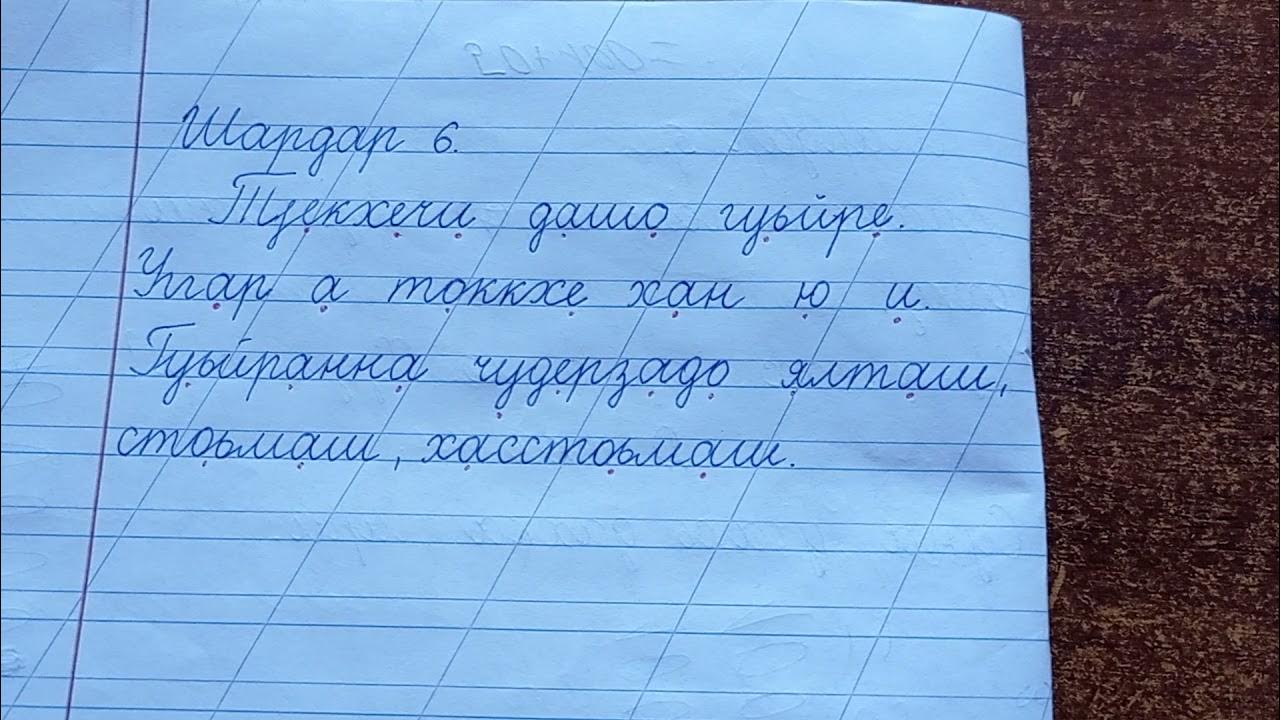 Шардар 6.
ТӀекхечи дашо гуьйре.
Уггар а токкхе хан ю и.
Гуьйранна чудерзадо ялташ,
стоьмаш, хасстоьмаш.